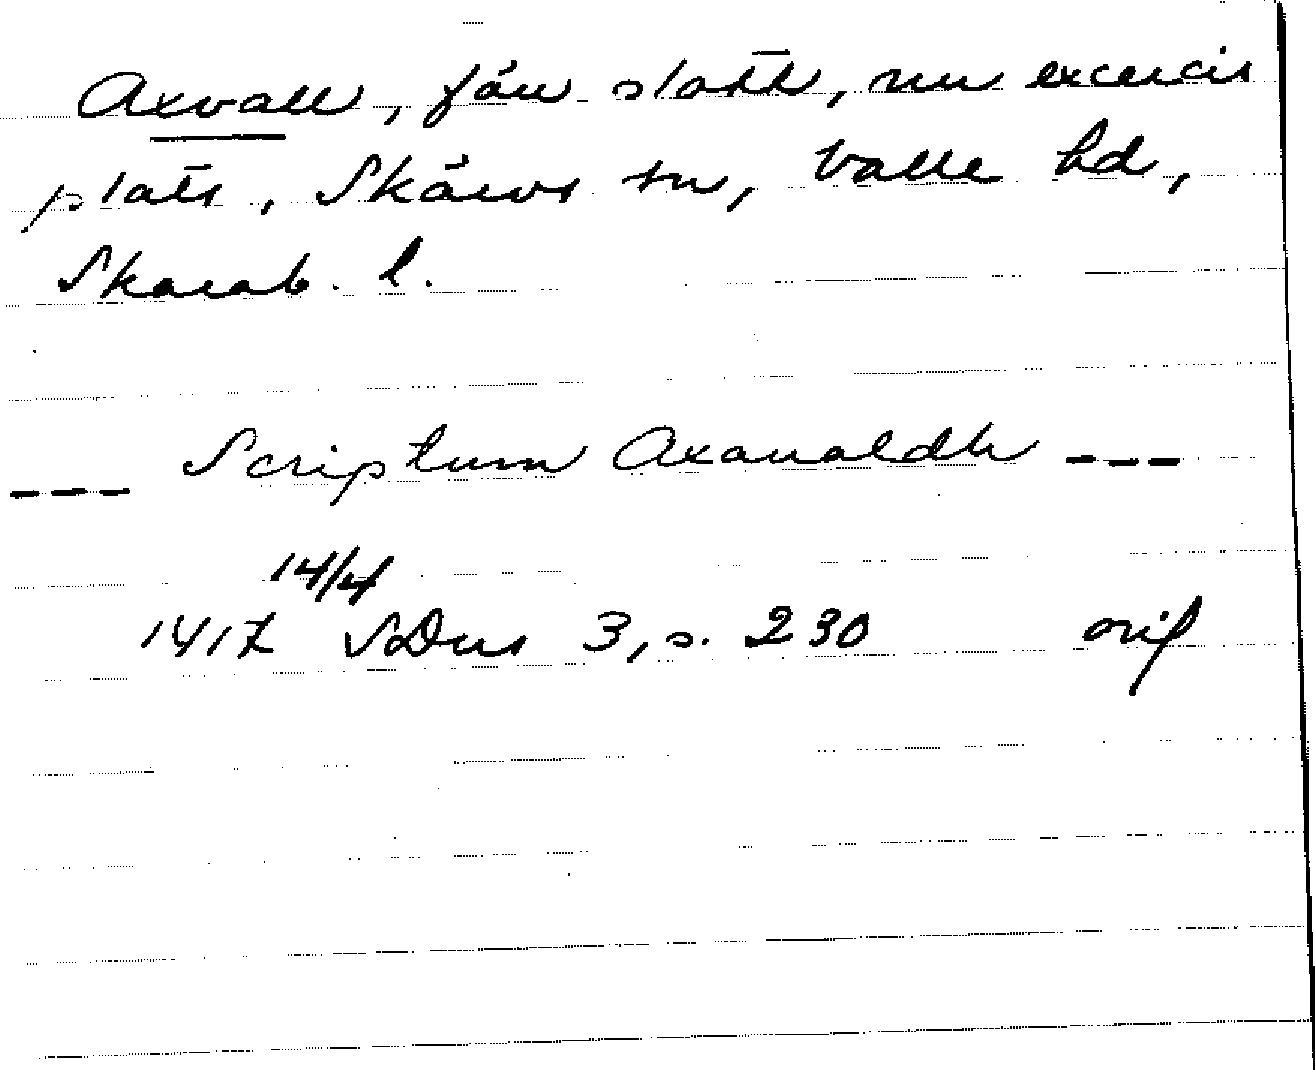 Axvall, förv slott, nu excercis
plats, Skärvs sn, Valle hd,
Skarab. l.
--- Scriptum Axaualdh ---
14/4
1417 SDns 3, s. 230 orig